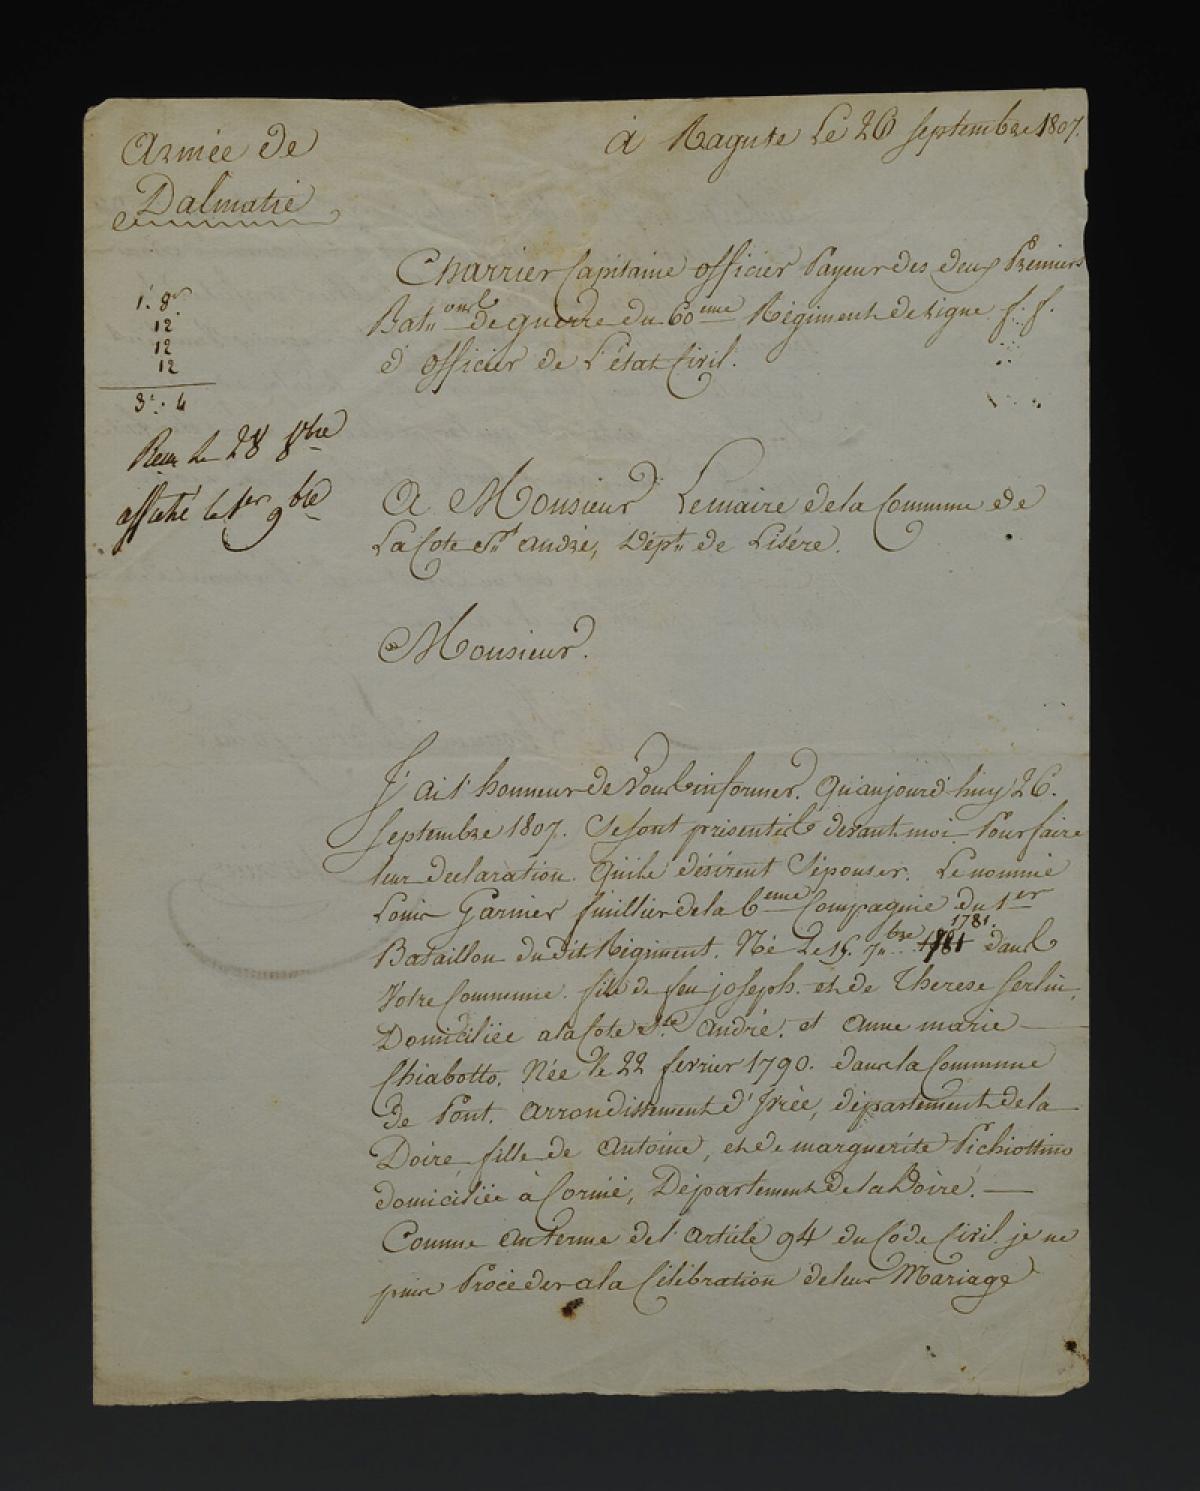 Armée de
Dalmatie
à Raguse Le 26 septembre 1807.
1. 8
12
12
12
3. 4
Charrier Capitaine officier Payeur des deux Premiers
Bat.ons de guerre du 60eme Régiment de Ligne f. f.
d'officier de L'état Civil.
Reçu le 28 8bre
affiché le 1er 9bre
A Monsieur Lemaire de la Commune de
La Cote St. andré, Dépt. de Lisére.
Monsieur.
J'ai l'honneur de Vous informer. Qu'aujourd'huy 26.
Septembre 1807. Se sont présentés devant moi Pour faire
leur declaration. Qu'ils désirent S'épouser. Le nommé
Louis Garnier fusillier de la 6eme Compagnie du 1er
Bataillon du dit Régiment. Né Le 15. 7bre 1781. dans
Votre Commune. fils de feu joseph. et de Therese Serlin,
Domiciliée a la Cote St. andré. et anne marie
Chiabotto. Née le 22 fevrier 1790. dans la Commune
de Pont. arrondissement d'Ivrée, département de la
Doire, fille de antoine, et de marguerite Pichiottino
domiciliée à Cormé, Département de la Doire.
Comme au terme de l'article 94 du Code Civil. je ne
puis Procéder a la Célébration de leur Mariage